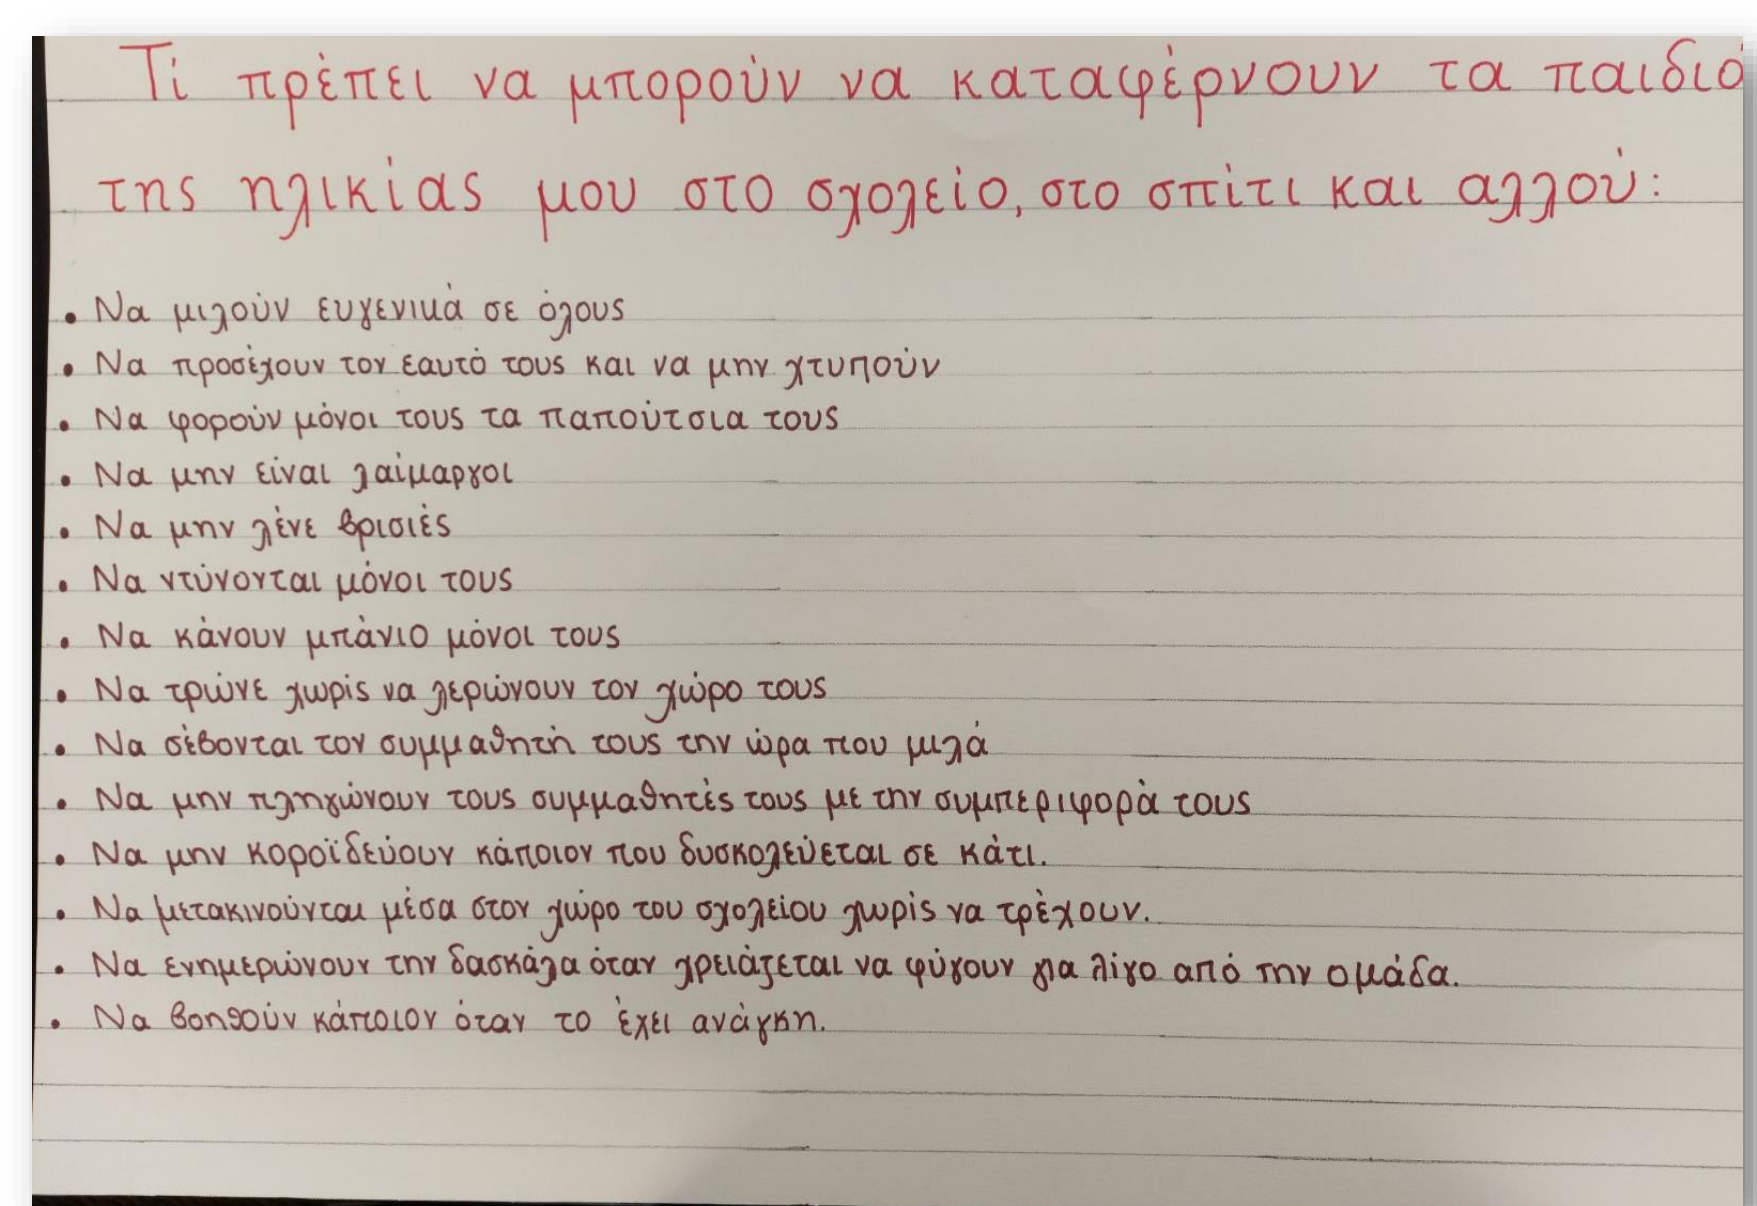 Τί πρέπει να μπορούν να καταφέρνουν τα παιδιά
της ηλικίας μου στο σχολείο, στο σπίτι και αλλού:
• Να μιλούν ευγενικά σε όλους
• Να προσέχουν τον εαυτό τους και να μην χτυπούν
• Να φορούν μόνοι τους τα παπούτσια τους
• Να μην είναι λαίμαργοι
• Να μην λένε βρισιές
• Να ντύνονται μόνοι τους
• Να κάνουν μπάνιο μόνοι τους
• Να τρώνε χωρίς να λερώνουν τον χώρο τους
• Να σέβονται τον συμμαθητή τους την ώρα που μιλά
• Να μην πληγώνουν τους συμμαθητές τους με την συμπεριφορά τους
• Να μην κοροϊδεύουν κάποιον που δυσκολεύεται σε κάτι.
• Να μετακινούνται μέσα στον χώρο του σχολείου χωρίς να τρέχουν.
• Να ενημερώνουν την δασκάλα όταν χρειάζεται να φύγουν για λίγο από την ομάδα.
• Να βοηθούν κάποιον όταν το έχει ανάγκη.